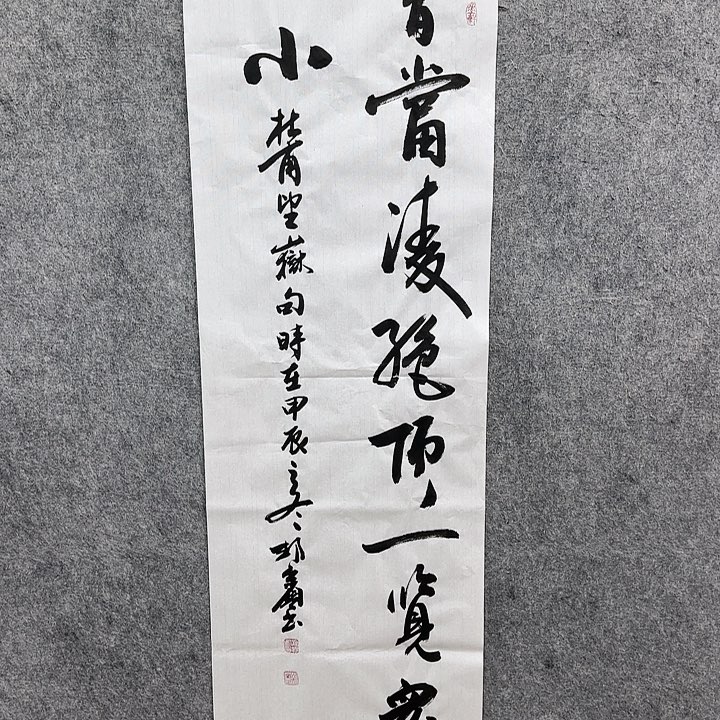 會當凌絶頂一覽眾
小
杜甫望嶽句時在甲辰之冬